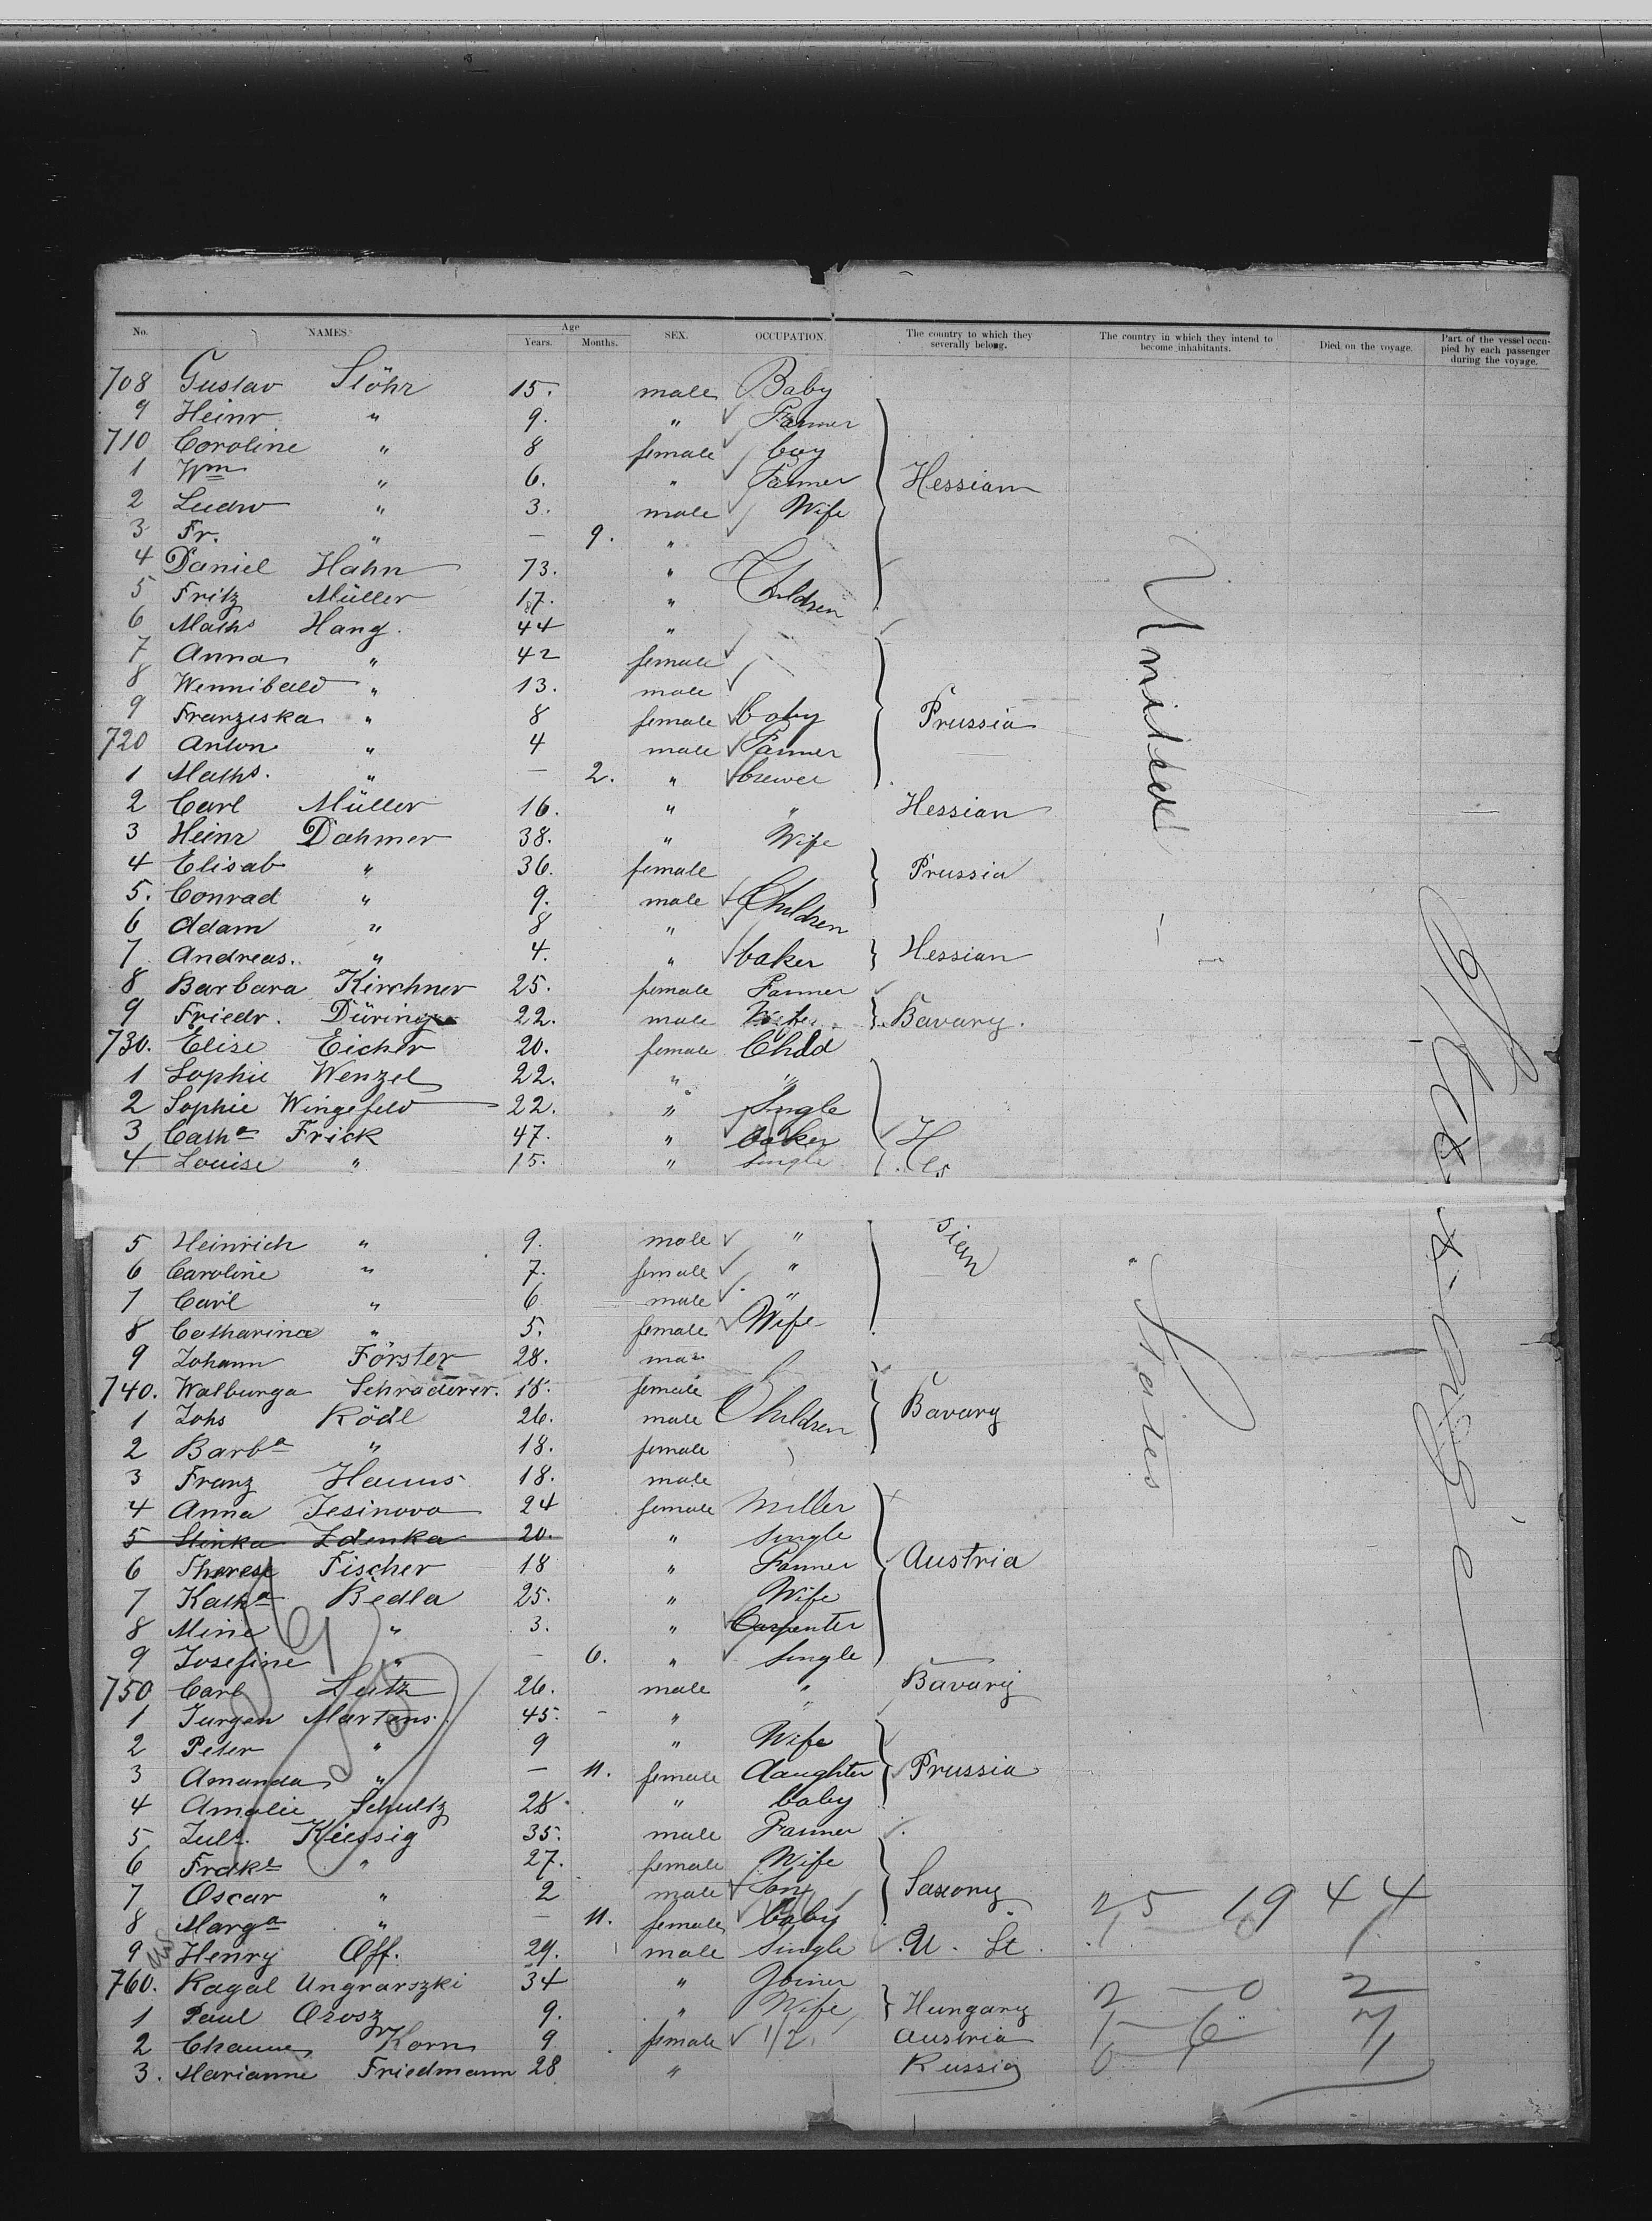 No. NAMES. Age Years. Months. SEX. OCCUPATION. The country to which they severally belong. The country in which they intend to become inhabitants. Died on the voyage. Part of the vessel occupied by each passenger during the voyage.
708 Gustav Stöhr 15. male Baby
9 Heinr. " 9. " Farmer
710 Caroline " 8 female boy
1 Wm " 6. " Farmer Hessian
2 Ludw " 3. male Wife
3 Fr. " — 9. "
4 Daniel Hahn 73. " Children
5 Fritz Müller 17. "
6 Maths Hang. 44 "
7 Anna " 42 female
8 Wennibald " 13. male
9 Franziska " 8 female baby Prussia
720 Anton " 4 male Farmer
1 Maths. " — 2. " brewer
2 Carl Müller 16. " " Hessian
3 Heinr Dahmer 38. " Wife
4 Elisab " 36. female Prussia
5. Conrad " 9. male Children
6 Adam " 8 "
7 Andreas. " 4. " baker Hessian
8 Barbara Kirchner 25. female Farmer
9 Friedr. Düring 22. male Bavary.
730. Elise Eicher 20. female Child
1 Sophie Wenzel 22. " "
2 Sophie Wingefeld 22. " Single
3 Catha Frick 47. " baker
4 Louise " 15. " Single Hes
5 Heinrich " 9. male " sian
6 Caroline " 7. female "
7 Carl " 6 male "
8 Catharina " 5. female Wife
9 Johann Förster 28. male
740. Walburga Schraderer. 18. female
1 Johs Rödl 26. male Children Bavary
2 Barba " 18. female
3 Franz Hanus 18. male
4 Anna Jesinova 24 female miller
5 Stinka Zdenka 20. " Single
6 Therese Fischer 18 " Farmer Austria
7 Katha Bedla 25. " Wife
8 Mine " 3. " Carpenter
9 Josefine " — 6. " Single
750 Carl Lutz 26. male " Bavary
1 Jurgen Martens. 45. "
2 Peter " 9 " Wife
3 Amanda " — 11. female daughter Prussia
4 Amalie Schultz 28. " baby
5 Juls. Kiessig 35. male Farmer
6 Frdke " 27. female Wife
7 Oscar " 2 male Son Saxony 25 19 44
8 Marga " — 11. female baby
9 Henry Off. 29. male Single U. St.
760. Ragal Ungrarszki 34 " Joiner 2 — 0 2
1 Paul Orosz 9. " Wife Hungary
2 Korn 9 female 1/2 Austria 1 — 6 7
3. Marianne Friedmann 28 " Russia 0 1 1
United
States